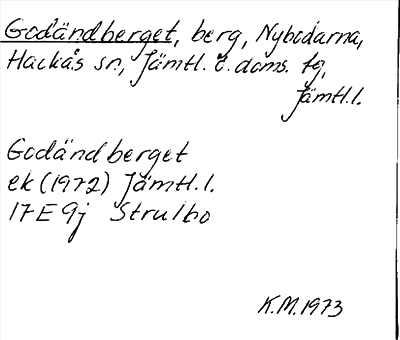 Godändberget, berg, Nybodarna,
Hackås sn., Jämtl. ö. doms. tg,
Jämtl.l.
Godändberget
ek (1972) Jämtl.l.
17E 9j Strulbo
K.M. 1973